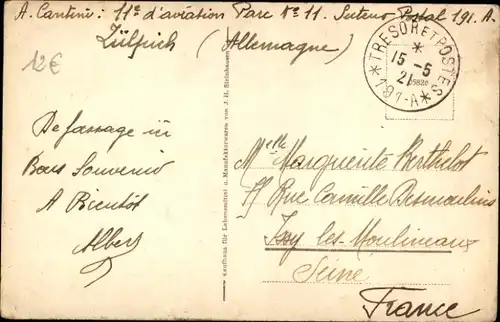 A. Cantini: 11e d'aviation Parc No 11. Secteur Postal 191. A.
Zülpich (Allemagne)
12€
TRESOR ET POSTES
*
15-5
21
*181-A*
De passage un
Bons Souvenir
A Bientôt
Albert
Kaufhaus für Lebensmittel u. Manufakturwaren von J. H.
Melle Marguerite Berthelot
Rue Camille Desmoulins
Issy les-Moulineaux
Seine
France